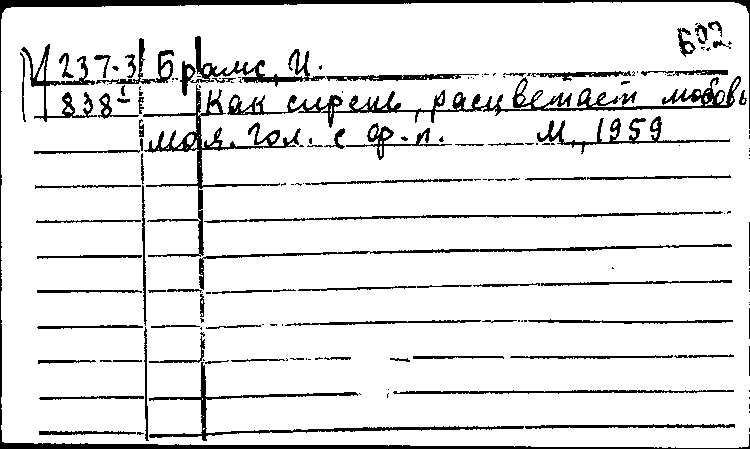 602
237-3 Брамс, И.
838 Как сирень, расцветает любовь
моя. Гол. с ф-п. М., 1959